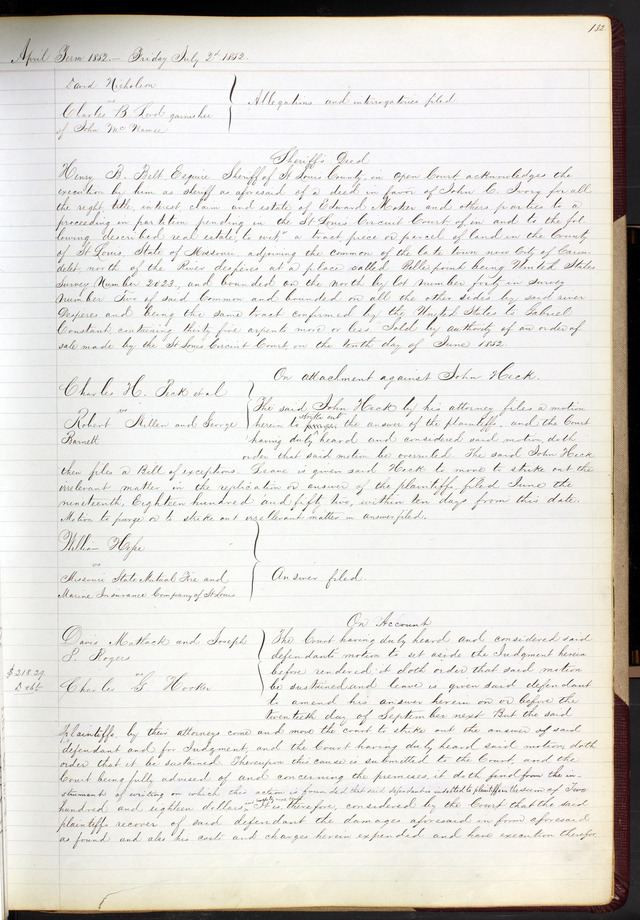 132
April Term 1852.— Friday July 2d 1852.
David Nicholson
vs
Charles B. Lord garnishee
of John McNamee
Allegations and interrogatories filed
Sheriff's Deed
Henry B. Belt Esquire Sheriff of St Louis County, in open Court acknowledges the
execution by him as sheriff as aforesaid of a deed in favor of John C. Ivory for all
the right, title, interest, claim and estate of Edward Mooker and others parties to a
proceeding in partition pending in the St Louis Circuit Court of in and to the fol
lowing described real estate, to wit," a tract piece or parcel of land in the County
of St Louis, State of Missouri adjoining the common of the late town now City of Caron
delet, north of the River desperes at a place called Belle point being United States
Survey Number 2023, and bounded on the north by lot Number forty in survey
number Two of said Common and bounded on all the other sides by said river
Desperes and being the same tract confirmed by the United States to Gabriel
Constant, containing thirty five arpents more or less. Sold by authority of an order of
sale made by the St Louis Circuit Court on the tenth day of June 1852.
On attachment against John Heck.
Charles H. Peck et al
vs
Robert Allen and George
Barnett
The said John Heck by his attorney files a motion
herein to strike out the answer of the plaintiffs, and the Court
having duly heard and considered said motion, doth
order that said motion be overruled. The said John Heck
then files a Bill of exceptions. Leave is given said Heck to move to strike out the
irrelevant matter in the replication or answer of the plaintiffs filed June the
nineteenth, Eighteen hundred and fifty two, within ten days from this date.
Motion to purge or to strike out irrellevant matter in answer filed.
William Hope
vs
Missouri State Mutual Fire and
Marine Insurance Company of St Louis
Answer filed.
On Account
Davis Matlack and Joseph
P. Rogers
vs
Charles G. Hooker
$218.29.
Debt
The Court having duly heard and considered said
defendants motion to set aside the Judgment herein
before rendered, it doth order that said motion
be sustained, and leave is given said defendant
to amend his answer herein on or before the
twentieth day of September next But the said
plaintiffs by their attorneys come and move the court to strike out the answer of said
defendant and for Judgment, and the Court having duly heard said motion, doth
order that it be sustained Thereupon this cause is submitted to the Court, and the
Court being fully advised of and concerning the premises, it doth find from the in-
strument of writing on which this action is founded that said defendant is indebted to plaintiffs in the sum of Two
hundred and eighteen dollars It is therefore, considered by the Court that the said
plaintiffs recover of said defendant the damages aforesaid in form aforesaid
as found and also his costs and charges herein expended and have execution therefor